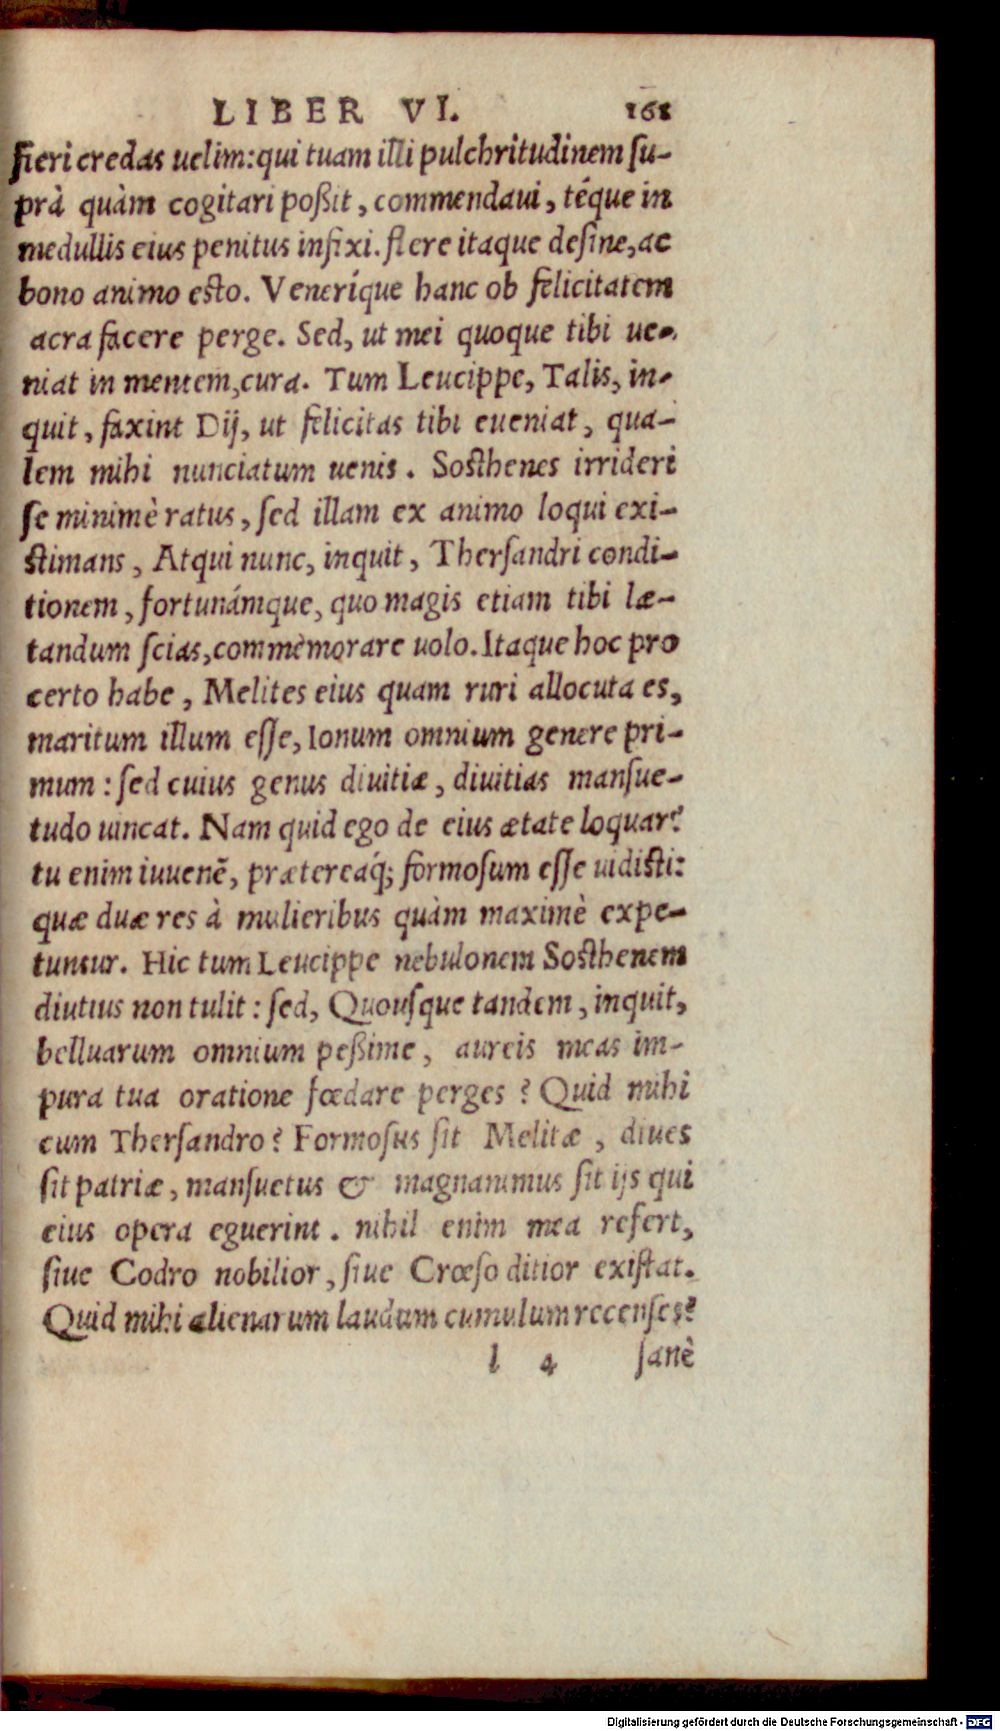 LIBER VI. 168
fieri credas uelim: qui tuam illi pulchritudinem ſu-
prà quàm cogitari poßit, commendaui, téque in
medullis eius penitus infixi. flere itaque deſine, ac
bono animo esto. Veneríque hanc ob felicitatem
acra facere perge. Sed, ut mei quoque tibi ue-
niat in mentem, cura. Tum Leucippe, Talis, in-
quit, faxint Dij, ut felicitas tibi eueniat, qua-
lem mihi nunciatum uenis. Sosthenes irrideri
ſe minimè ratus, ſed illam ex animo loqui exi-
stimans, Atqui nunc, inquit, Therſandri condi-
tionem, fortunámque, quo magis etiam tibi læ-
tandum ſcias, commèmorare uolo. Itaque hoc pro
certo habe, Melites eius quam ruri allocuta es,
maritum illum eſſe, Ionum omnium genere pri-
mum: ſed cuius genus diuitiæ, diuitias manſue-
tudo uincat. Nam quid ego de eius ætate loquar?
tu enim iuuenẽ, prætereaq́; formoſum eſſe uidisti:
quæ duæ res à mulieribus quàm maximè expe-
tuntur. Hic tum Leucippe nebulonem Sosthenem
diutius non tulit: ſed, Quouſque tandem, inquit,
belluarum omnium peßime, aureis meas im-
pura tua oratione fœdare perges? Quid mihi
cum Therſandro? Formoſus ſit Melitæ, diues
ſit patriæ, manſuetus & magnanimus ſit ijs qui
eius opera eguerint. nihil enim mea refert,
ſiue Codro nobilior, ſiue Crœſo ditior exiſtat.
Quid mihi alienarum laudum cumulum recenſes?
l 4 ſanè
Digitalisierung gefördert durch die Deutsche Forschungsgemeinschaft - DFG